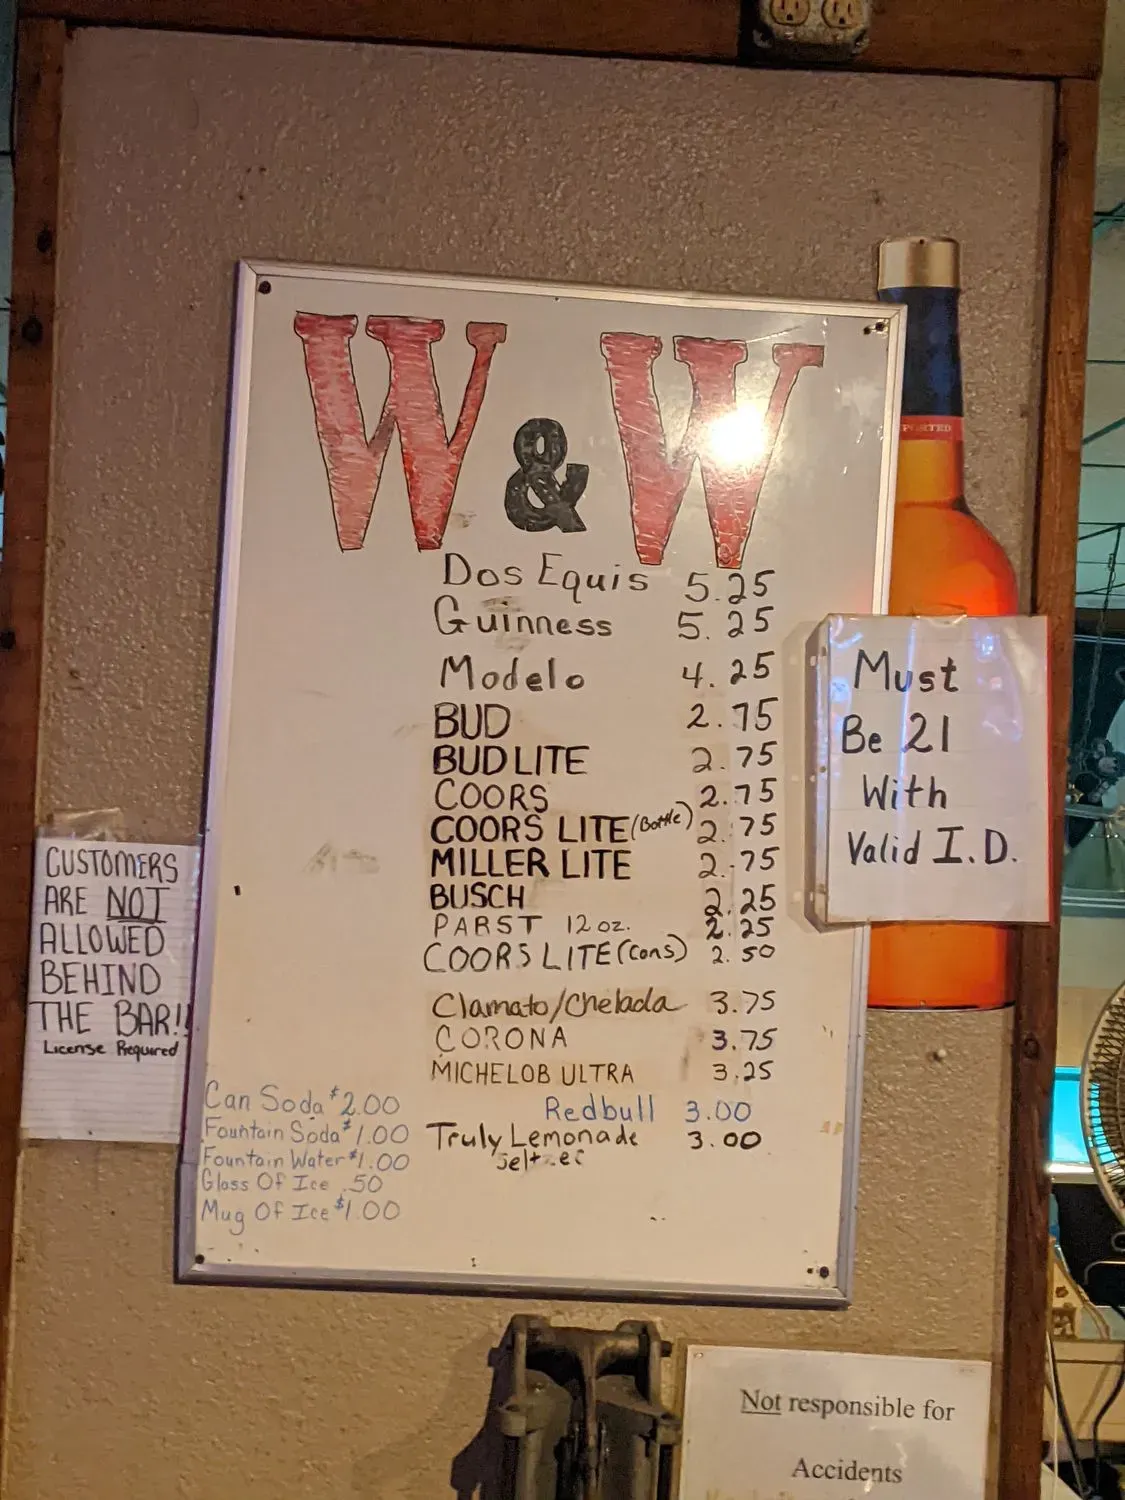 W & W
PORTED
Dos Equis 5.25
Guinness 5.25
Modelo 4.25
BUD 2.75
BUD LITE 2.75
COORS 2.75
COORS LITE (Bottle) 2.75
MILLER LITE 2.75
BUSCH 2.25
PARST 12 oz. 2.25
COORS LITE (Cans) 2.50
Clamato/Chelada 3.75
CORONA 3.75
MICHELOB ULTRA 3.25
Redbull 3.00
Truly Lemonade 3.00
Seltzer
Can Soda $2.00
Fountain Soda $1.00
Fountain Water $1.00
Glass Of Ice .50
Mug Of Ice $1.00
Must
Be 21
With
Valid I.D.
CUSTOMERS
ARE NOT
ALLOWED
BEHIND
THE BAR!!
License Required
Not responsible for
Accidents